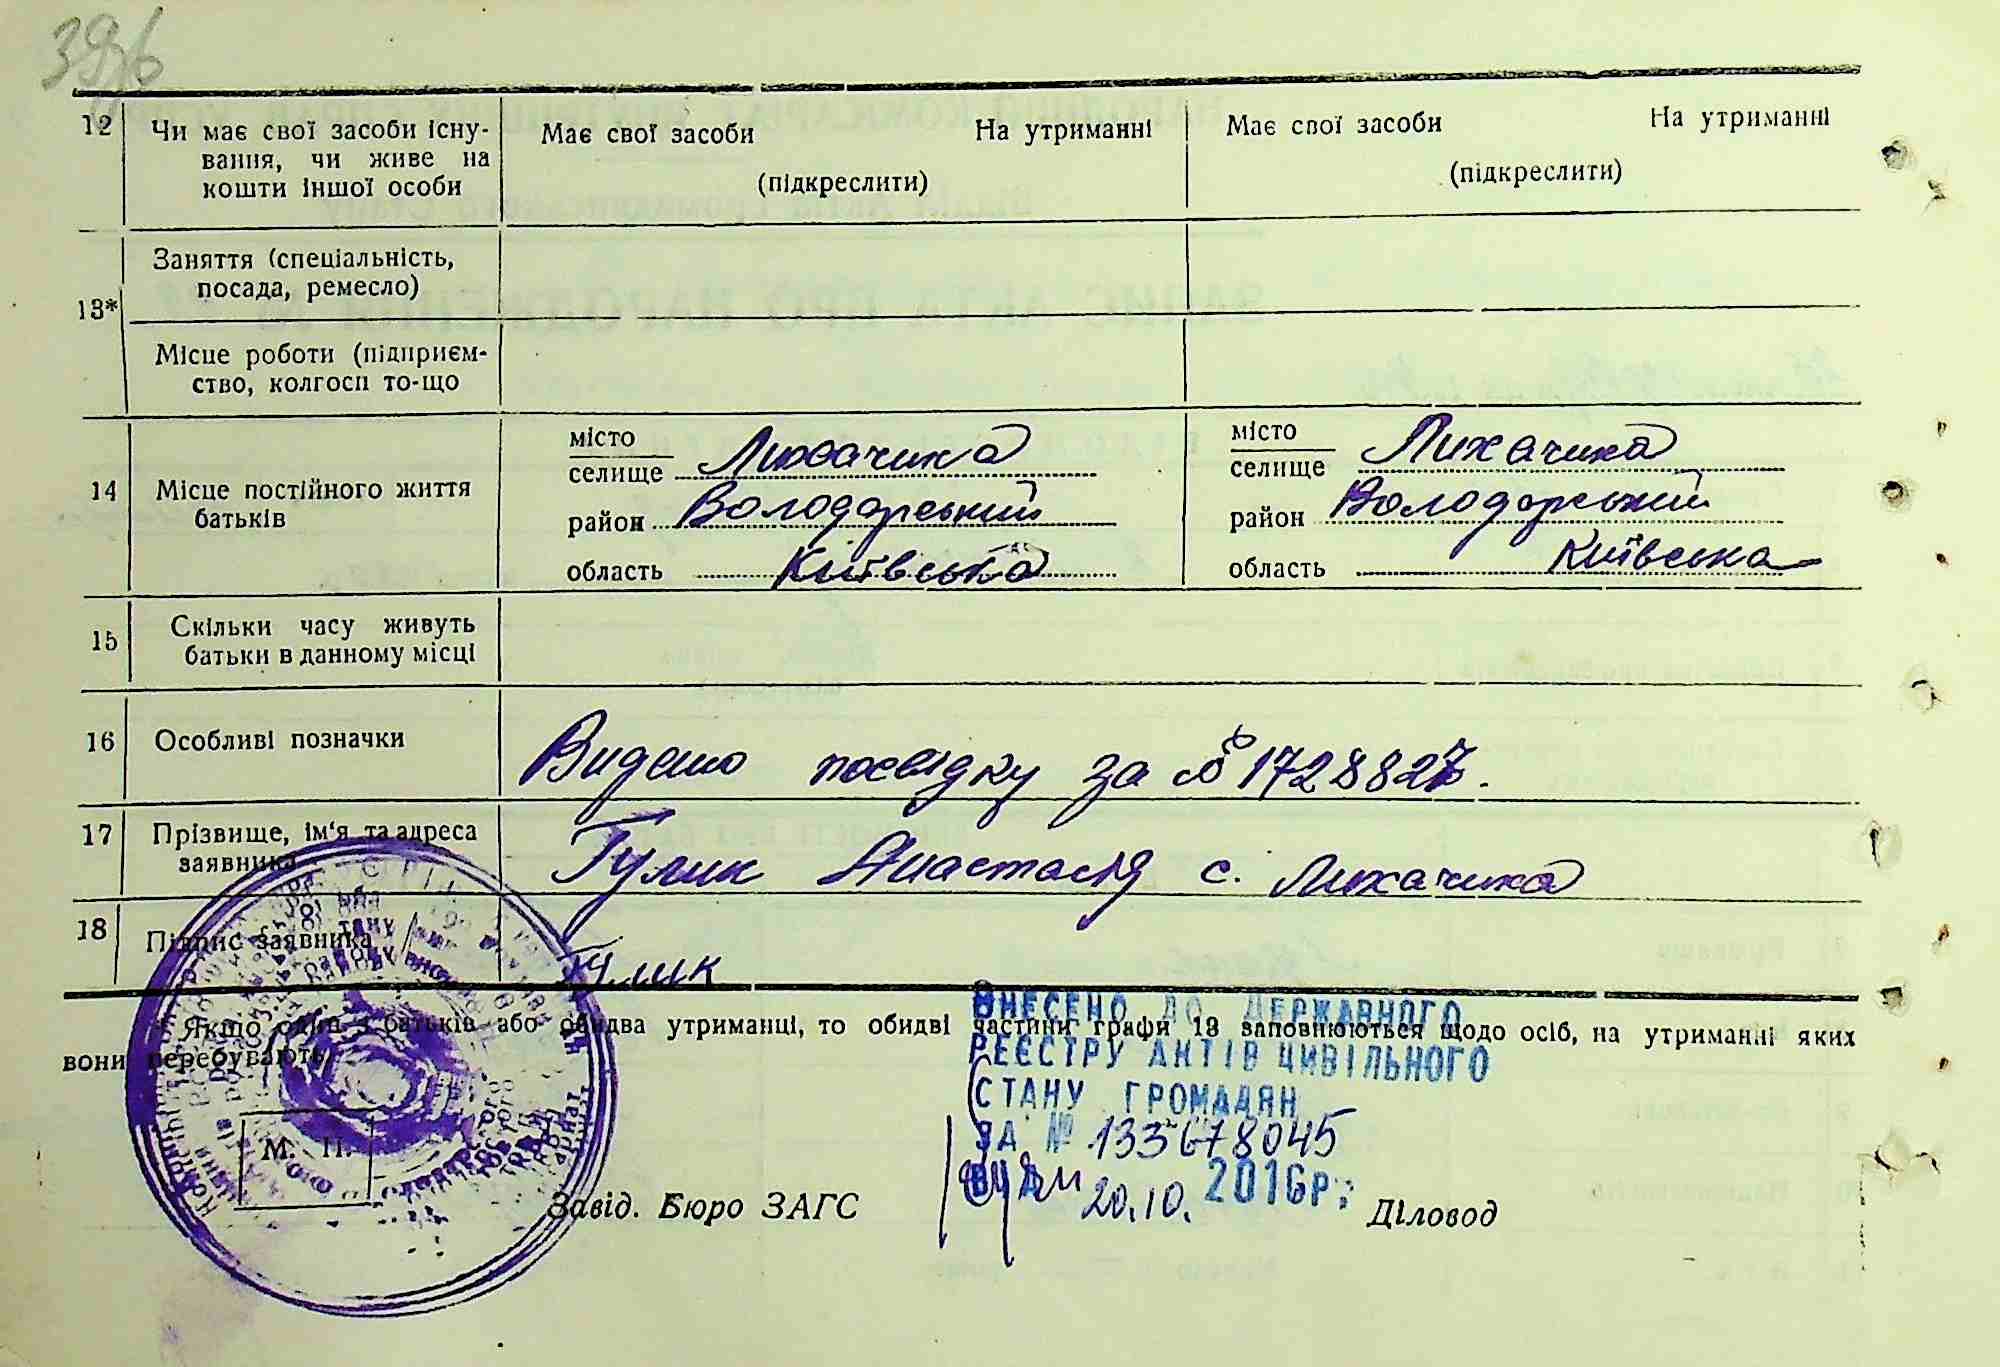 12 Чи має свої засоби існу-
вання, чи живе на
кошти іншої особи
Має свої засоби На утриманні
(підкреслити)
Має свої засоби На утриманні
(підкреслити)
13* Заняття (спеціальність,
посада, ремесло)
Місце роботи (підприєм-
ство, колгосп то-що
14 Місце постійного життя
батьків
місто
селище Лихачиха
район Володарський
область Київська
місто
селище Лихачиха
район Володарський
область Київська
15 Скільки часу живуть
батьки в данному місці
16 Особливі позначки
Видано посвідку за № 1728827.
17 Прізвище, ім'я та адреса
заявника
Гулик Анастасія с. Лихачиха
18 Підпис заявника
Гулик
* Якщо один з батьків або обидва утриманці, то обидві частини графи 13 заповнюються щодо осіб, на утриманні яких
вони перебувають.
ВНЕСЕНО ДО ДЕРЖАВНОГО
РЕЄСТРУ АКТІВ ЦИВІЛЬНОГО
СТАНУ ГРОМАДЯН
ЗА № 133678045
ВІД 20.10. 2016р.
М. П.
Завід. Бюро ЗАГС
Діловод